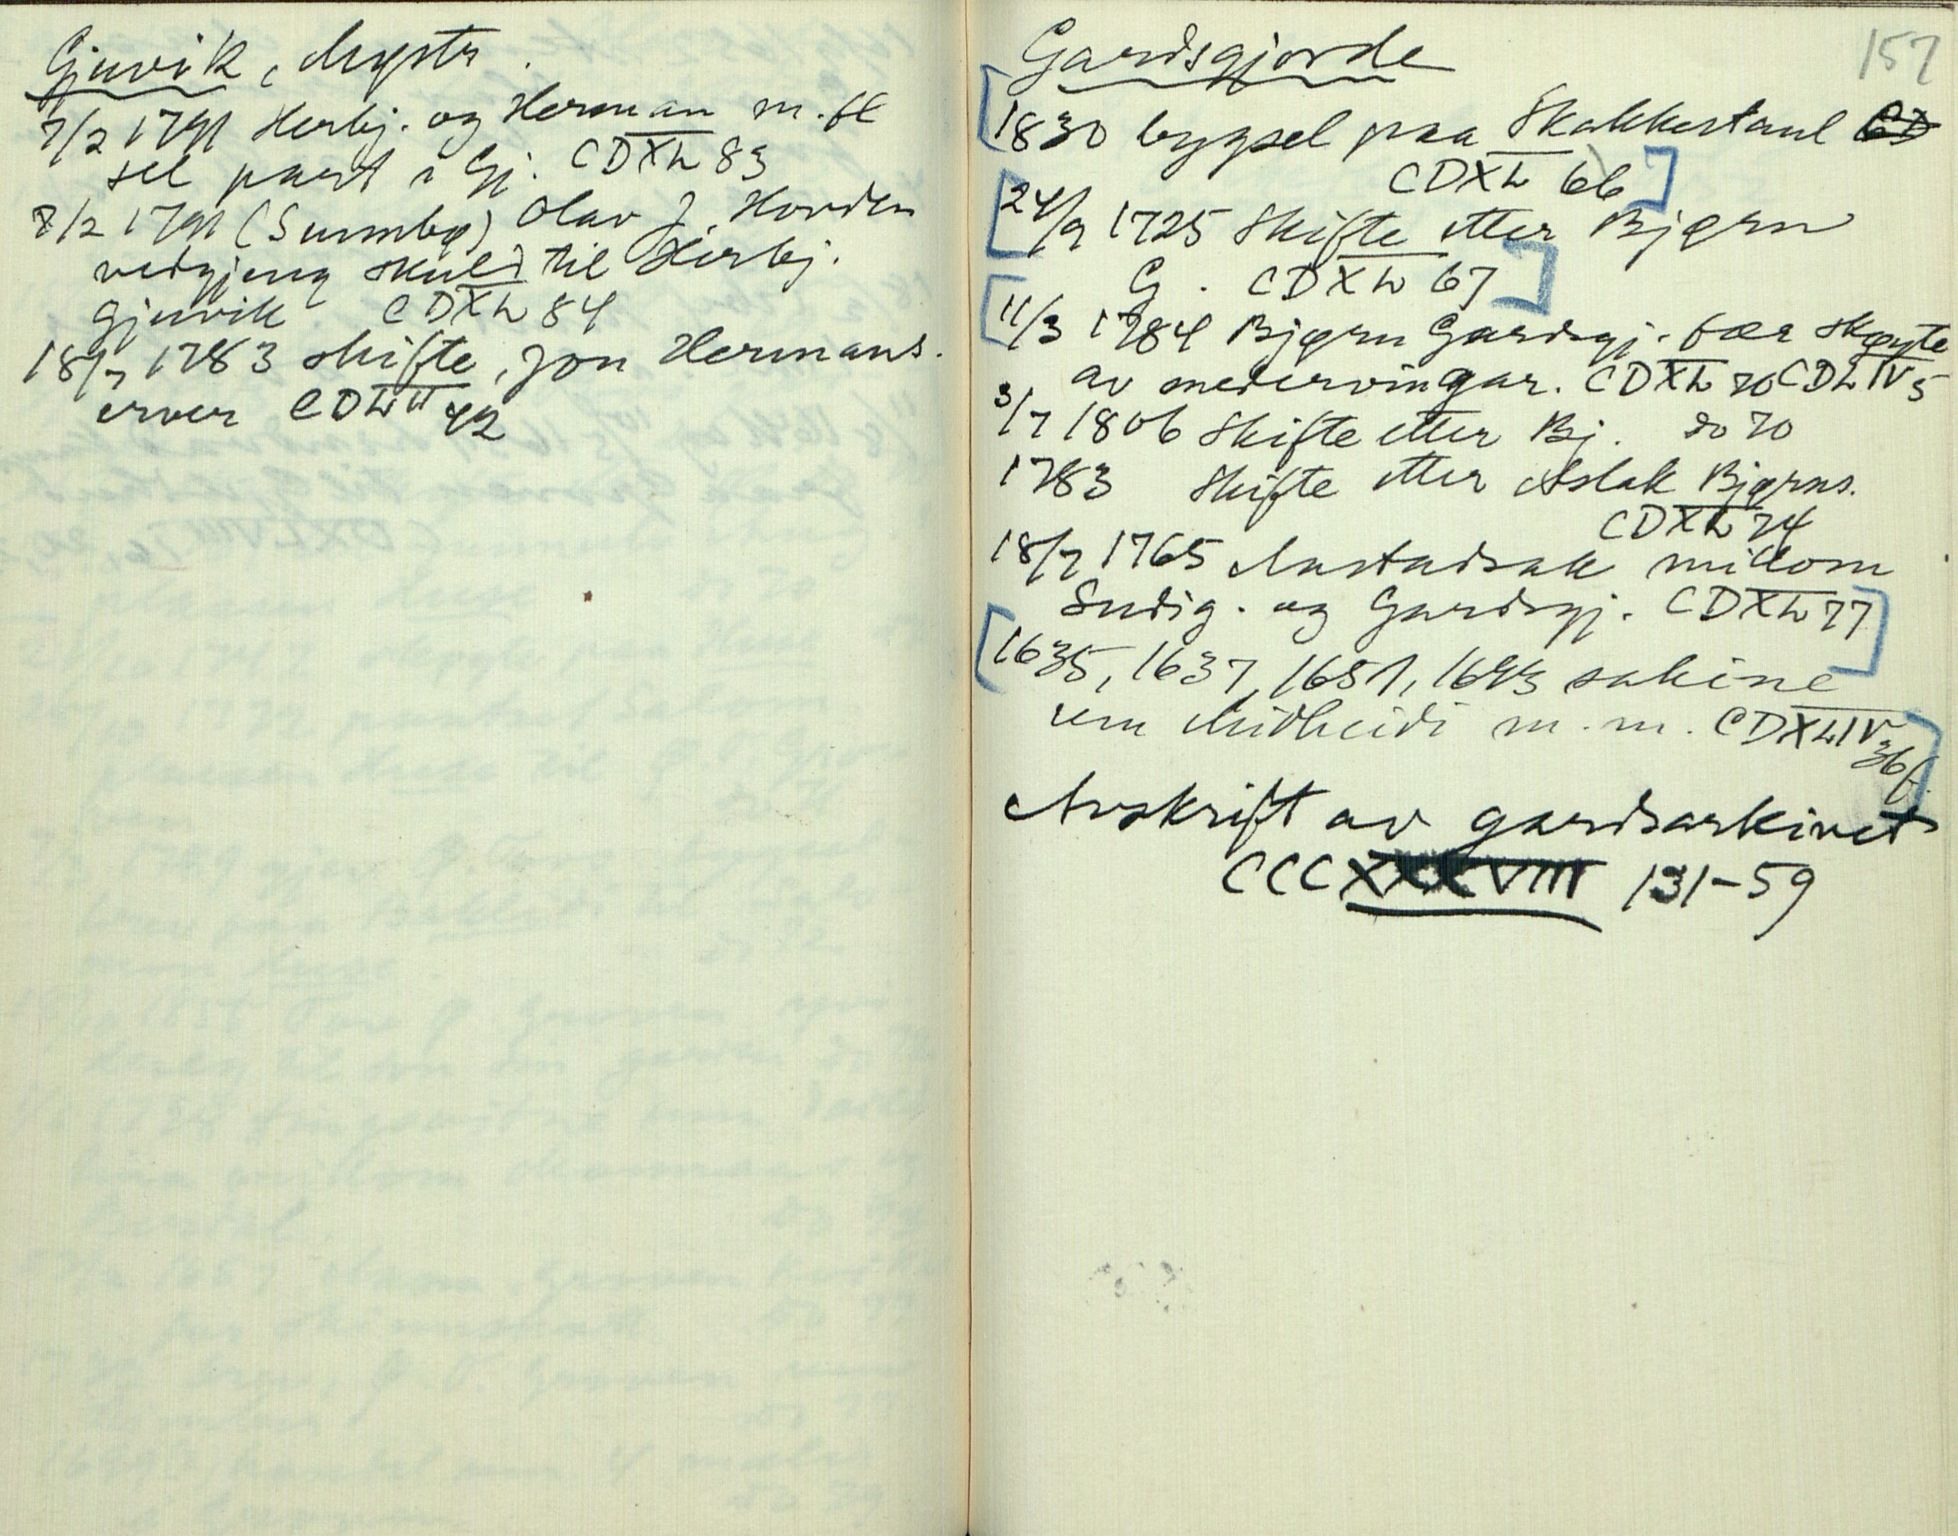 Gjuvik, Mystr.
7/2 1791 Herbj. og Herman m. fl
sel part i Gj. CDXL 83
7/2 1791 (Sumbø) Olav J. Hovden
vedgjeng skuld til Herbj.
Gjuvik CDXL 84
18/7 1783 skifte, Jon Hermans.
erver CDLII 42
157
Gardsgjorde
1830 bygsel paa Skakkestaul
CDXL 66
24/9 1725 Skifte etter Bjørn
G. CDXL 67
11/3 1784 Bjørn Gardsgj. fær skøyte
av medervingar. CDXL 70 CDLIV 5
3/7 1806 Skifte etter Bj. do 70
1783 Skifte etter Aslak Bjørns.
CDXL 74
18/7 1765 Aastadsak millom
Sudig. og Gardsgj. CDXL 77
1635, 1637, 1651, 1693 sakine
um Midheidi m.m. CDXLIV 36f.
Avskrift av gardsarkivet
CCCXXXVIII 131-59